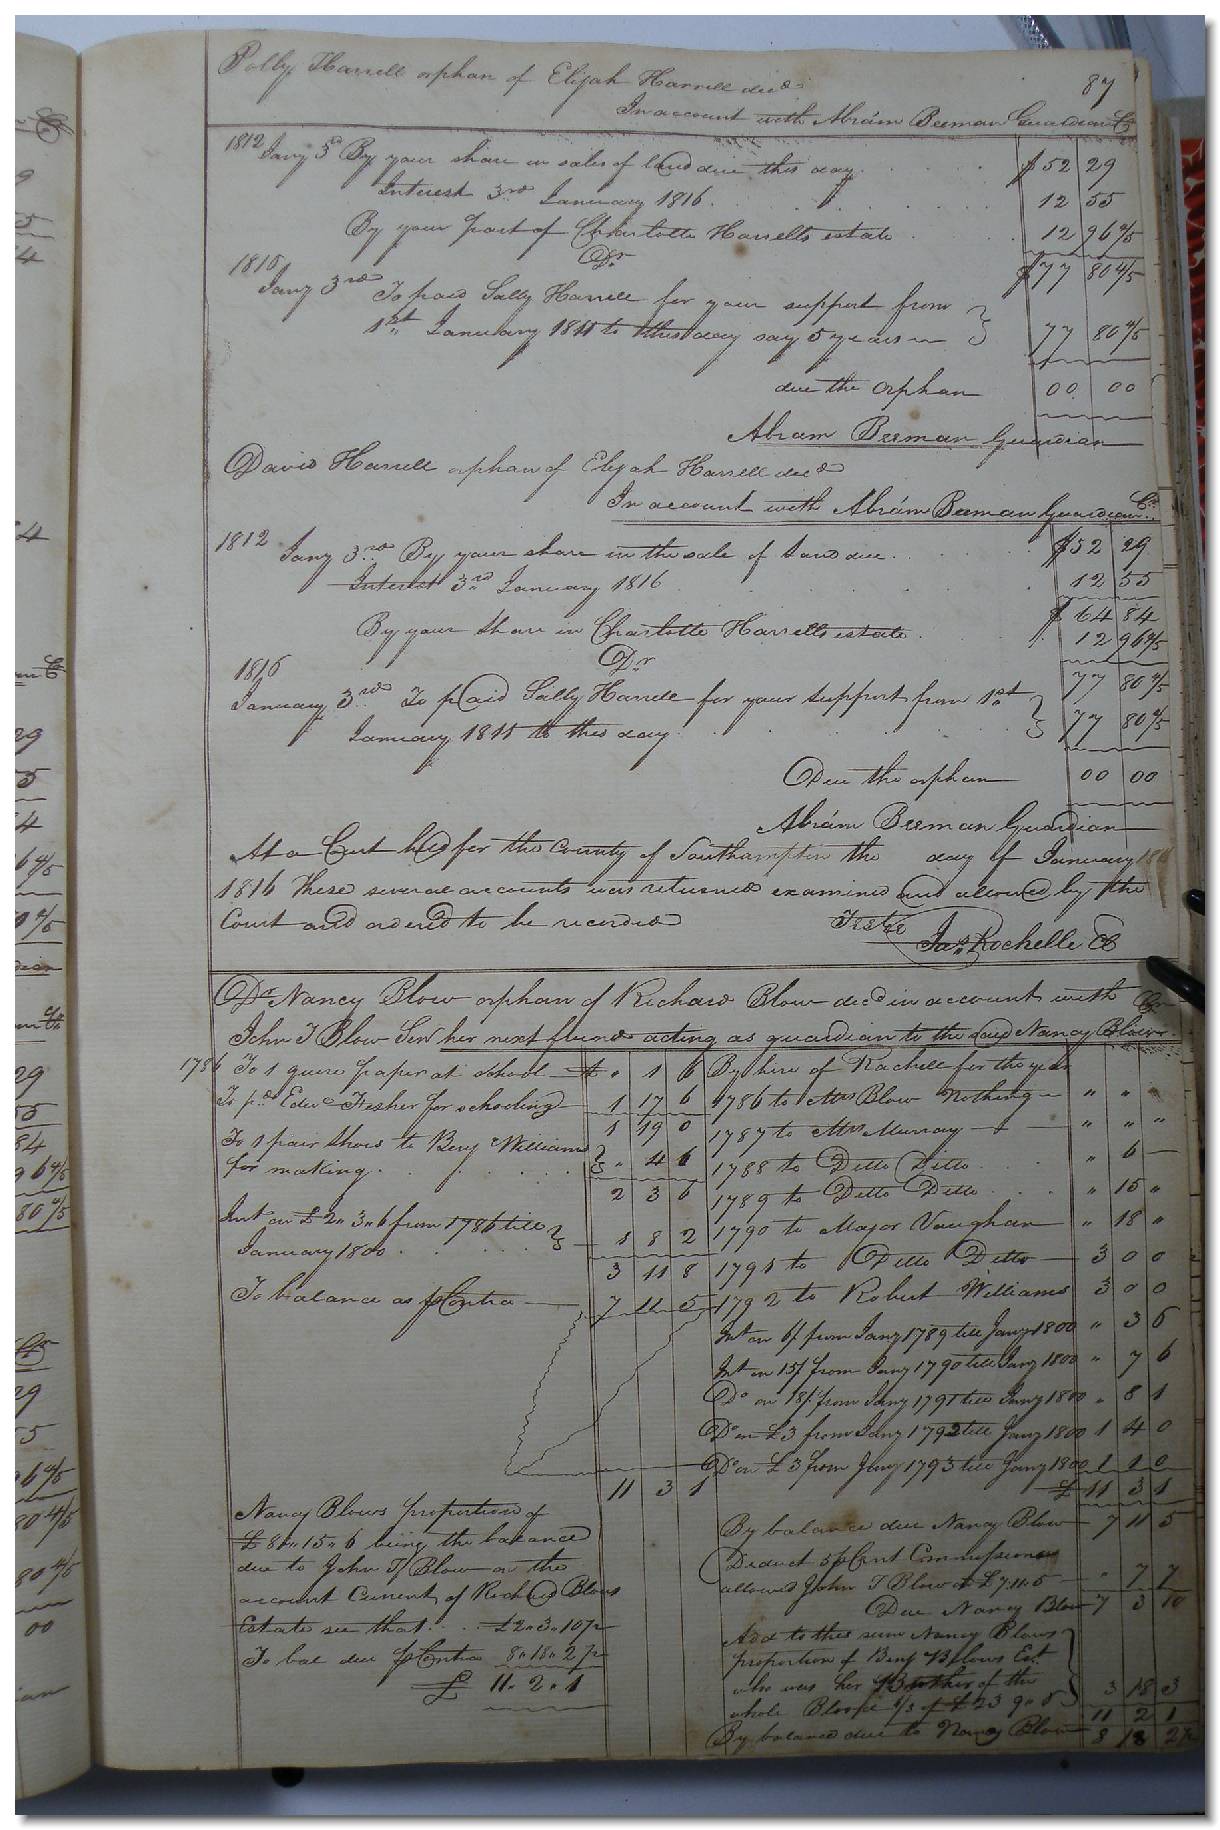 87
Polly Harrell orphan of Elijah Harrell decd
In account with Abram Beeman Guardian Cr
1812 Jany 3d By your share in sales of land due this day $52 29
Interest 3rd January 1816 12 55
By your part of Charlotte Harrells estate 12 96 4/5
Dr $77 80 4/5
1816
Jany 3rd To paid Sally Harrell for your support from
1st January 1811 to this day say 5 years 77 80 4/5
due the orphan 00 00
Abram Beeman Guardian
David Harrell orphan of Elijah Harrell decd
In account with Abram Beeman Guardian Cr
1812 Jany 3rd By your share in the sale of Land due $52 29
Interest 3rd January 1816 12 55
$ 64 84
By your share in Charlotte Harrells estate 12 96 4/5
Dr
1816 77 80 4/5
January 3rd To paid Sally Harrell for your support from 1st
January 1811 to this day 77 80 4/5
Due the orphan 00 00
Abram Beeman Guardian
At a Court held for the County of Southampton the day of January
1816 These several accounts was returned examined and allowed by the
Court and ordered to be recorded
Teste
Jas Rochelle CC
Dr Nancy Blow orphan of Richard Blow decd in account with Cr
John T Blow Senr her next friend acting as guardian to the said Nancy Blow
1786 To 1 quire paper at School £ " 1 6
To pd Edwd Fisher for schooling 1 17 6
1 19 0
To 1 pair Shoes to Benj Williams
for making " 4 6
2 3 6
Int on £2"3"6 from 1786 till
January 1800 1 8 2
3 11 8
To balance as pr Contra 7 11 5
11 3 1
Nancy Blows proportion of
£8"15"6 being the balance
due to John T Blow on the
account Current of Richard Blows
Estate see that £2"3"10½
To bal due pr Contra 8"18"2½
£ 11"2"1
By hire of Rachell for the year
1786 to Mrs Blow Nothing " " "
1787 to Mrs Murray " " "
1788 to Ditto Ditto " 6 —
1789 to Ditto Ditto " 15 "
1790 to Major Vaughan " 18 "
1791 to Ditto Ditto 3 0 0
1792 to Robert Williams 3 0 0
Int on 6/ from Jany 1789 till Jany 1800 " 3 6
Int on 15/ from Jany 1790 till Jany 1800 " 7 6
Do on 18/ from Jany 1791 till Jany 1800 " 8 1
Do on £3 from Jany 1792 till Jany 1800 1 4 0
Do on £3 from Jany 1793 till Jany 1800 1 1 0
£ 11 3 1
By balance due Nancy Blow 7 11 5
Deduct 5 pCent Commissions
allowed John T Blow on £7.11.5 " 7 7
Due Nancy Blow 7 3 10
Add to this sum Nancy Blows
proportion of Benj Blows Est
who was her Brother of the
whole 1/6 of £23 9"5 3 18 3
11 2 1
By balance due to Nancy Blow 8 18 2½